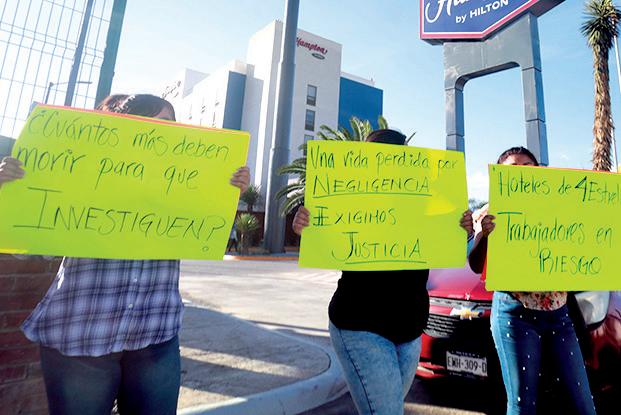 Hampton
BY HILTON
¿Cuántos más deben
morir para que
INVESTIGUEN?
Una vida perdida por
NEGLIGENCIA
EXIGIMOS
JUSTICIA
Hoteles de 4 Estrel
Trabajadores en
RIESGO
EWH-309-D